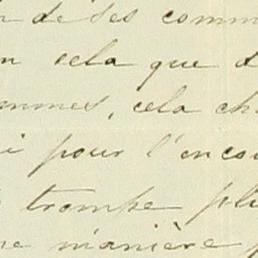 de ses comm
n cela que d
ommes, cela ch
i pour l'encou
trompe plu
ne manière p